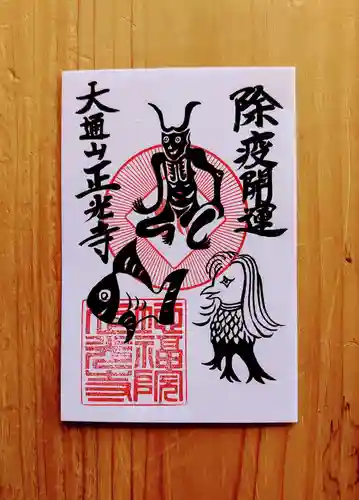 除疫開運
大通山正光寺